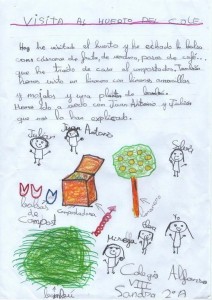 VISITA AL HUERTO DEL COLE
Hoy he visitado el huerto y he echado la bolsa
con cáscaras de fruta, de verdura, posos de café...
que he traído de casa al compostador. También
hemos visto un limonero con limones amarillos
y mojados y una planta de
Hemos ido a verlo con Juan Antonio y Julián
que nos lo han explicado.
Julián
Juan Antonio
Silvia
bolsas
de
compost
compostadora
Yo
Colegio Alfonso
VIII
Sandra 2ºA